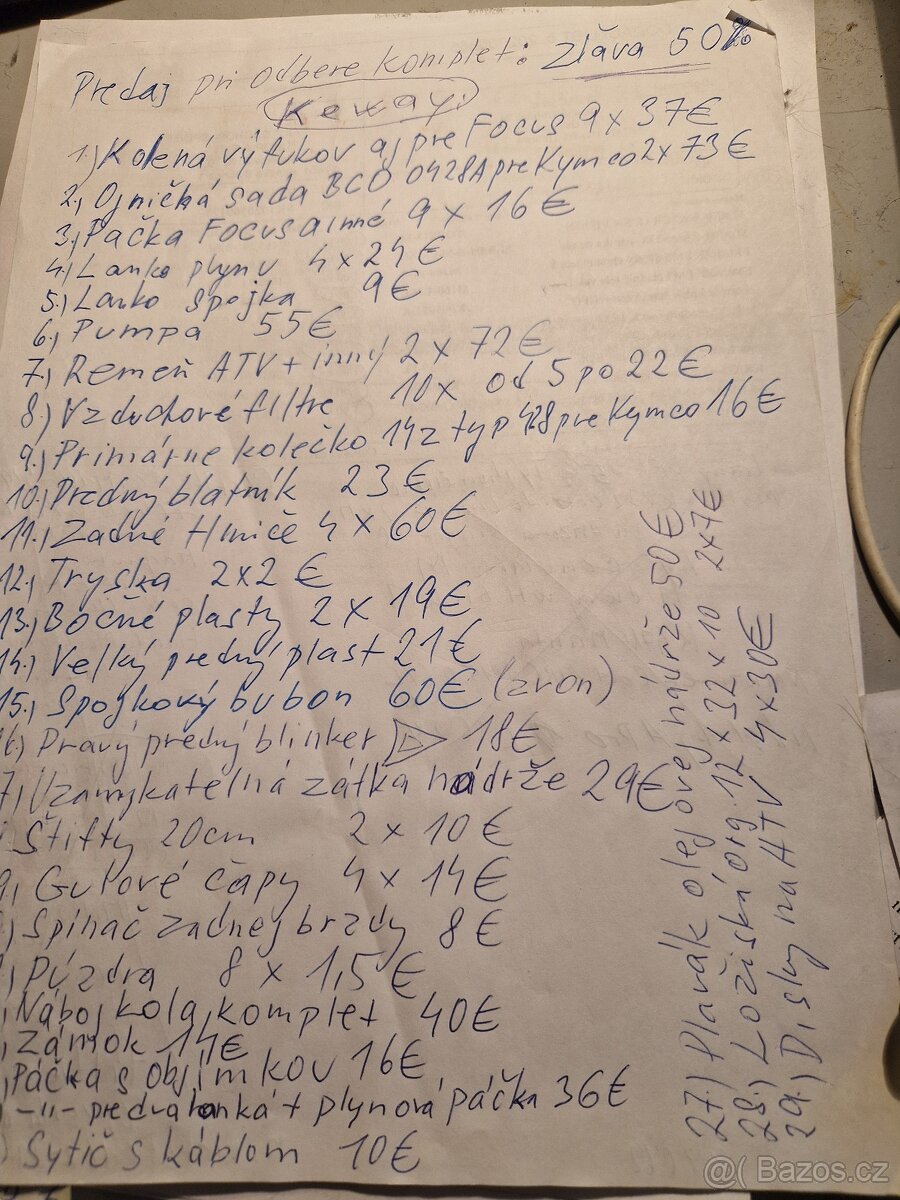 Predaj pri odbere komplet: Zľava 50%
Keway:
1.) Kolená výfukov aj pre Focus 9 x 37€
2.) Ojničká sada BCO 0428A pre Kymco 2x 73€
3.) Páčka Focus a inné 9 x 16€
4.) Lanko plynu 4 x 24€
5.) Lanko spojka 9€
6.) Pumpa 55€
7.) Remeň ATV + inný 2 x 72€
8.) Vzduchové filtre 10x od 5 po 22€
9.) Primárne kolečko 14z typ 428 pre Kymco 16€
10.) Predný blatník 23€
11.) Zadné tlmiče 4 x 60€
12.) Tryska 2x2€
13.) Bočné plasty 2 x 19€
14.) Veľký predný plast 21€
15.) Spojkový bubon 60€ (zvon)
6.) Pravý predný blinker 18€
7.) Uzamykateľná zátka nádrže 29€
Štifty 20cm 2 x 10€
9.) Guľové čapy 4 x 14€
) Spínač zadnej brzdy 8€
) Púzdra 8 x 1,5€
) Náboj kola komplet 40€
) Zámok 14€
) Páčka s objímkou 16€
) -"- pre lanká + plynová páčka 36€
) Sytič s káblom 10€
27.) Plavák olejovej nádrže 50€
28.) Ložiská org. 12 x 32 x 10 2x7€
29.) Disky na ATV 4x30€
@( Bazos.cz